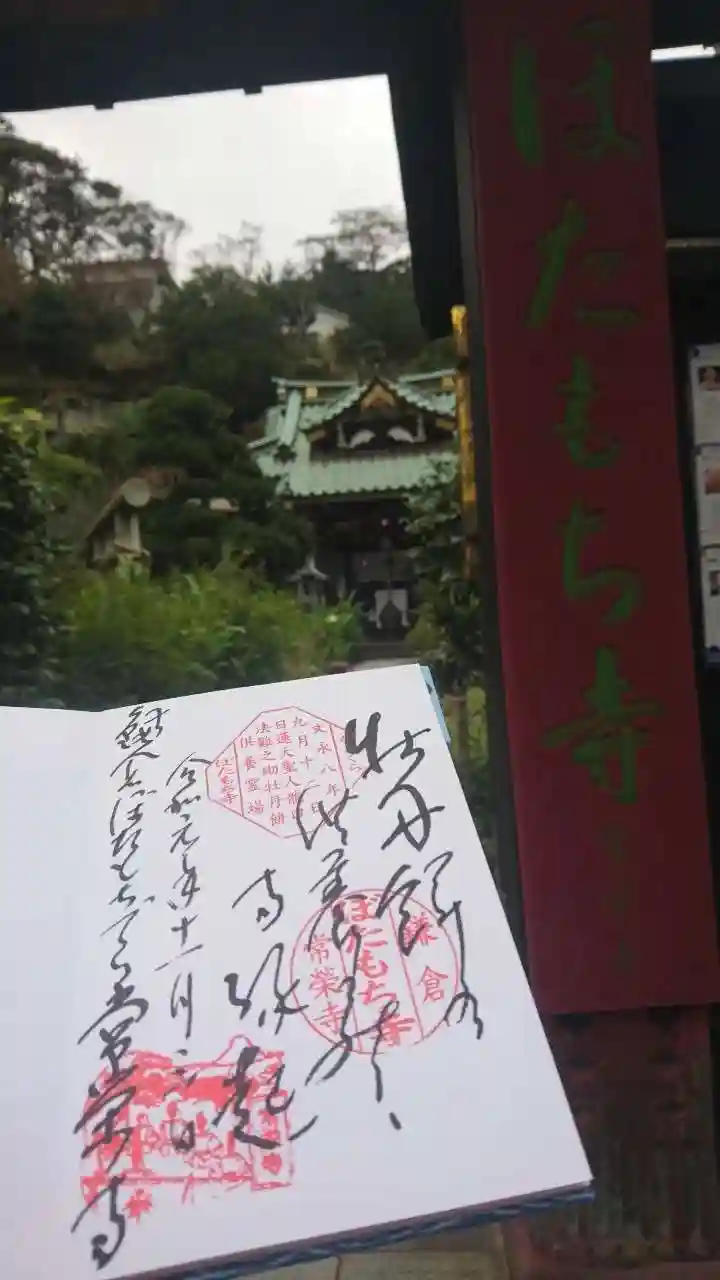 ほたもち寺
牡丹餅の
寺縁起
令和元年十一月
鎌倉ぼたもち寺常栄寺
文永八年
九月十二日
日蓮大聖人龍口
法難之助牡丹餅
供養霊場
ぼたもち寺
鎌倉
ぼたもち寺
常榮寺